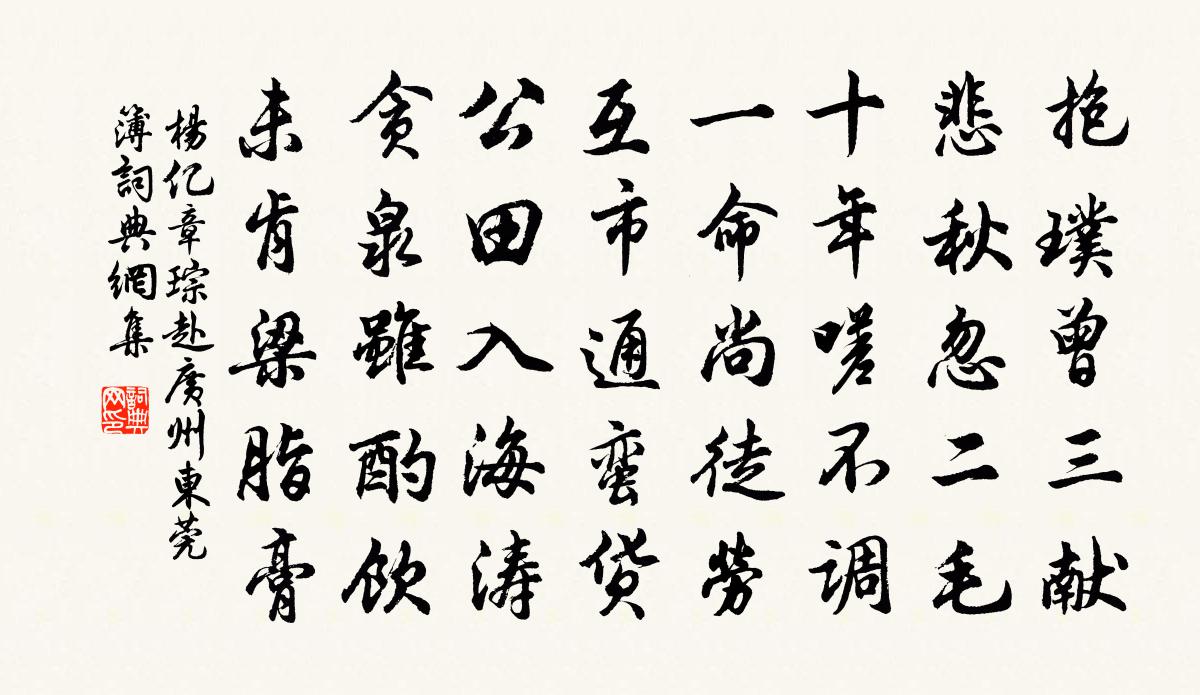 抱璞曾三献
悲秋忽二毛
十年嗟不调
一命尚徒勞
互市通蠻货
公田入海涛
贪泉雖酌饮
未肯梁脂膏
楊亿章琮赴廣州東莞
簿詞典網集
詞典网印